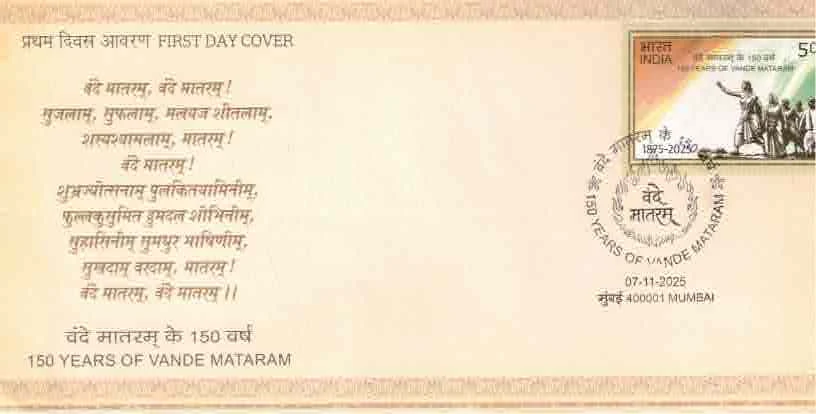 प्रथम दिवस आवरण FIRST DAY COVER
वंदे मातरम्, वंदे मातरम्!
सुजलाम्, सुफलाम्, मलयज शीतलाम्,
शस्यश्यामलाम्, मातरम्!
वंदे मातरम्!
शुभ्रज्योत्सनाम् पुलकितयामिनीम्,
फुल्लकुसुमित द्रुमदल शोभिनीम्,
सुहासिनीम् सुमधुर भाषिणीम्,
सुखदाम् वरदाम्, मातरम्!
वंदे मातरम्, वंदे मातरम्।।
वंदे मातरम् के 150 वर्ष
150 YEARS OF VANDE MATARAM
भारत
INDIA
वंदे मातरम् के 150 वर्ष
150 YEARS OF VANDE MATARAM
1875-2025
वंदे मातरम् के 150 वर्ष
वंदे
मातरम्
150 YEARS OF VANDE MATARAM
07-11-2025
मुंबई 400001 MUMBAI